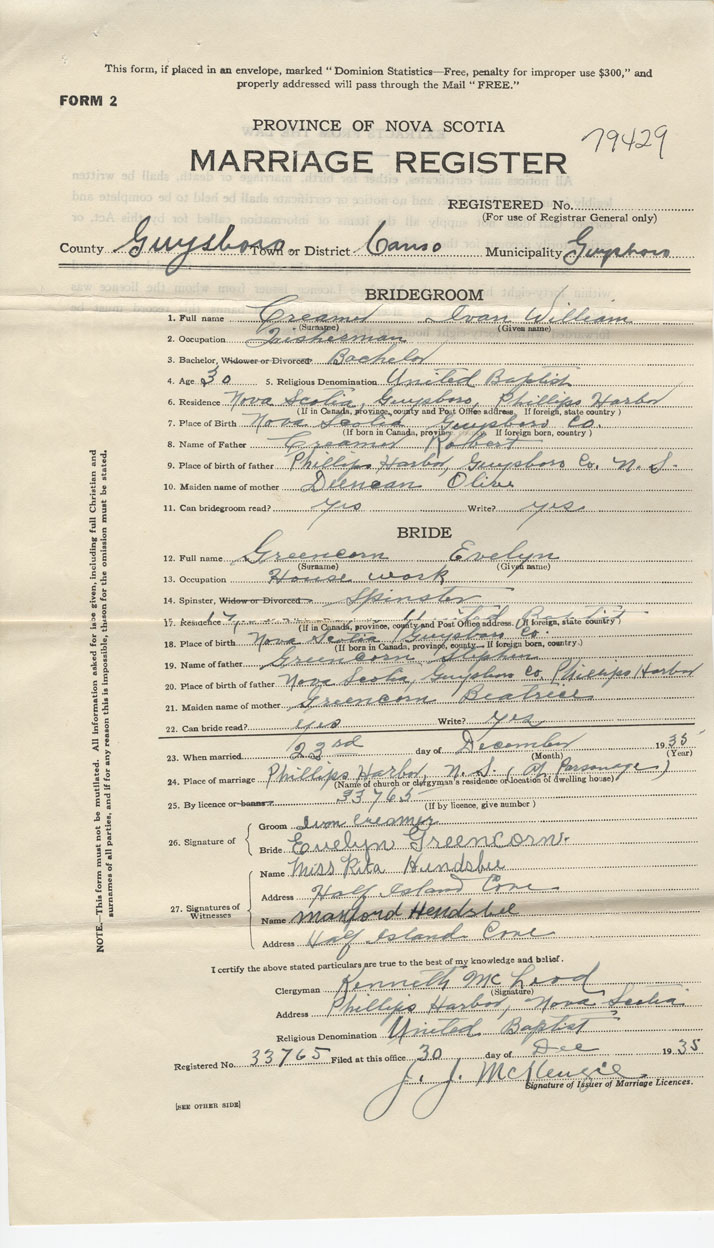 This form, if placed in an envelope, marked "Dominion Statistics—Free, penalty for improper use $300," and
properly addressed will pass through the Mail "FREE."
FORM 2
PROVINCE OF NOVA SCOTIA
79429
MARRIAGE REGISTER
REGISTERED No.
(For use of Registrar General only)
County Guysboro Town or District Canso Municipality Guysboro
BRIDEGROOM
1. Full name Creamer Ivan William
(Surname) (Given name)
2. Occupation Fisherman
3. Bachelor, Widower or Divorced Bachelor
4. Age 30 5. Religious Denomination United Baptist
6. Residence Nova Scotia, Guysboro, Phillips Harbor
(If in Canada, province, county and Post Office address. If foreign, state country)
7. Place of Birth Nova Scotia Guysboro Co.
(If born in Canada, province If foreign born, country)
8. Name of Father Creamer Robert
9. Place of birth of father Phillips Harbor, Guysboro Co. N.S.
10. Maiden name of mother Duncan Olive
11. Can bridegroom read? yes Write? yes
BRIDE
12. Full name Greencorn Evelyn
(Surname) (Given name)
13. Occupation House work
14. Spinster, Widow or Divorced Spinster
17. Residence
(If in Canada, province, county and Post Office address. If foreign, state country)
18. Place of birth Nova Scotia Guysboro Co.
(If born in Canada, province, county If foreign born, country)
19. Name of father Greencorn Stephen
20. Place of birth of father Nova Scotia, Guysboro Co, Phillips Harbor
21. Maiden name of mother Greencorn Beatrice
22. Can bride read? yes Write? yes
23. When married 23rd day of December 1935
(Month) (Year)
24. Place of marriage Phillips Harbor, N.S. (At Parsonage)
(Name of church or clergyman's residence or location of dwelling house)
25. By licence or banns 33765
(If by licence, give number)
26. Signature of
Groom Ivon Creamer
Bride Evelyn Greencorn.
27. Signatures of Witnesses
Name Miss Rita Hendsbee
Address Half Island Cove
Name Manford Hendsbee
Address Half Island Cove
I certify the above stated particulars are true to the best of my knowledge and belief.
Clergyman Kenneth McLeod
(Signature)
Address Phillips Harbor, Nova Scotia
Religious Denomination United Baptist
Registered No. 33765 Filed at this office 30 day of Dec 1935
J. J. McKenzie
Signature of Issuer of Marriage Licences.
[SEE OTHER SIDE]
NOTE.—This form must not be mutilated. All information asked for given, including full Christian and
surnames of all parties, and if for any reason this is impossible, for the omission must be stated.